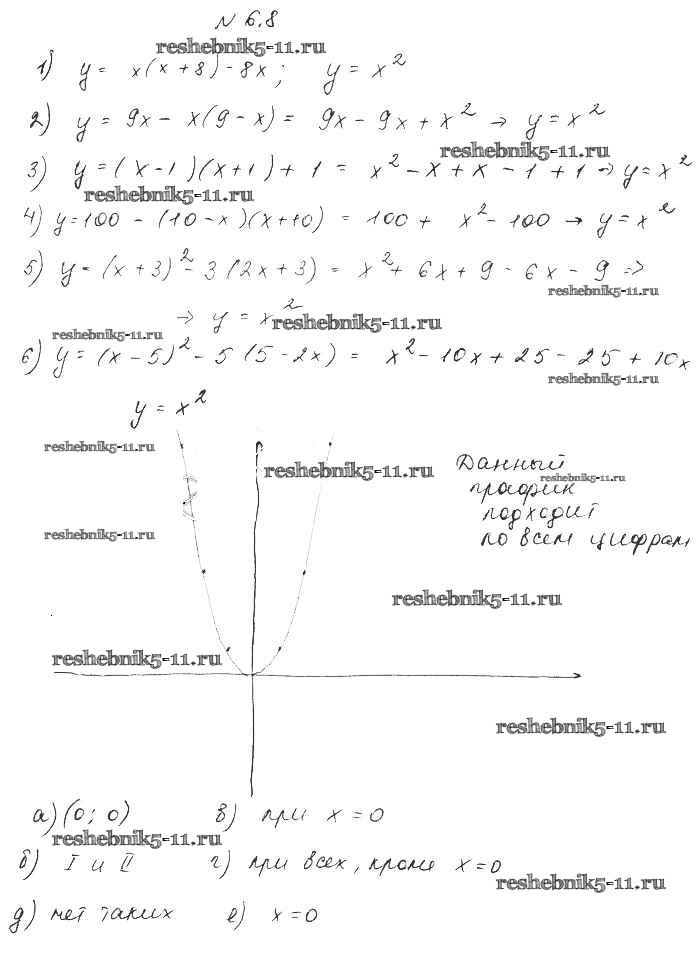 N 6.8
reshebnik5-11.ru
1) y = x(x+8)-8x; y = x²
2) y = 9x - x(9-x) = 9x - 9x + x² → y = x²
reshebnik5-11.ru
3) y = (x-1)(x+1)+1 = x² - x + x - 1 + 1 → y = x²
reshebnik5-11.ru
4) y = 100 - (10-x)(x+10) = 100 + x² - 100 → y = x²
5) y = (x+3)² - 3(2x+3) = x² + 6x + 9 - 6x - 9 =>
reshebnik5-11.ru
→ y = x²
reshebnik5-11.ru
reshebnik5-11.ru
6) y = (x-5)² - 5(5-2x) = x² - 10x + 25 - 25 + 10x
reshebnik5-11.ru
y = x²
reshebnik5-11.ru
reshebnik5-11.ru
Данный
reshebnik5-11.ru
график
подходит
reshebnik5-11.ru
по всем цифрам
reshebnik5-11.ru
reshebnik5-11.ru
reshebnik5-11.ru
а) (0; 0) в) при x = 0
reshebnik5-11.ru
б) I и II г) при всех, кроме x = 0
reshebnik5-11.ru
д) нет таких е) x = 0